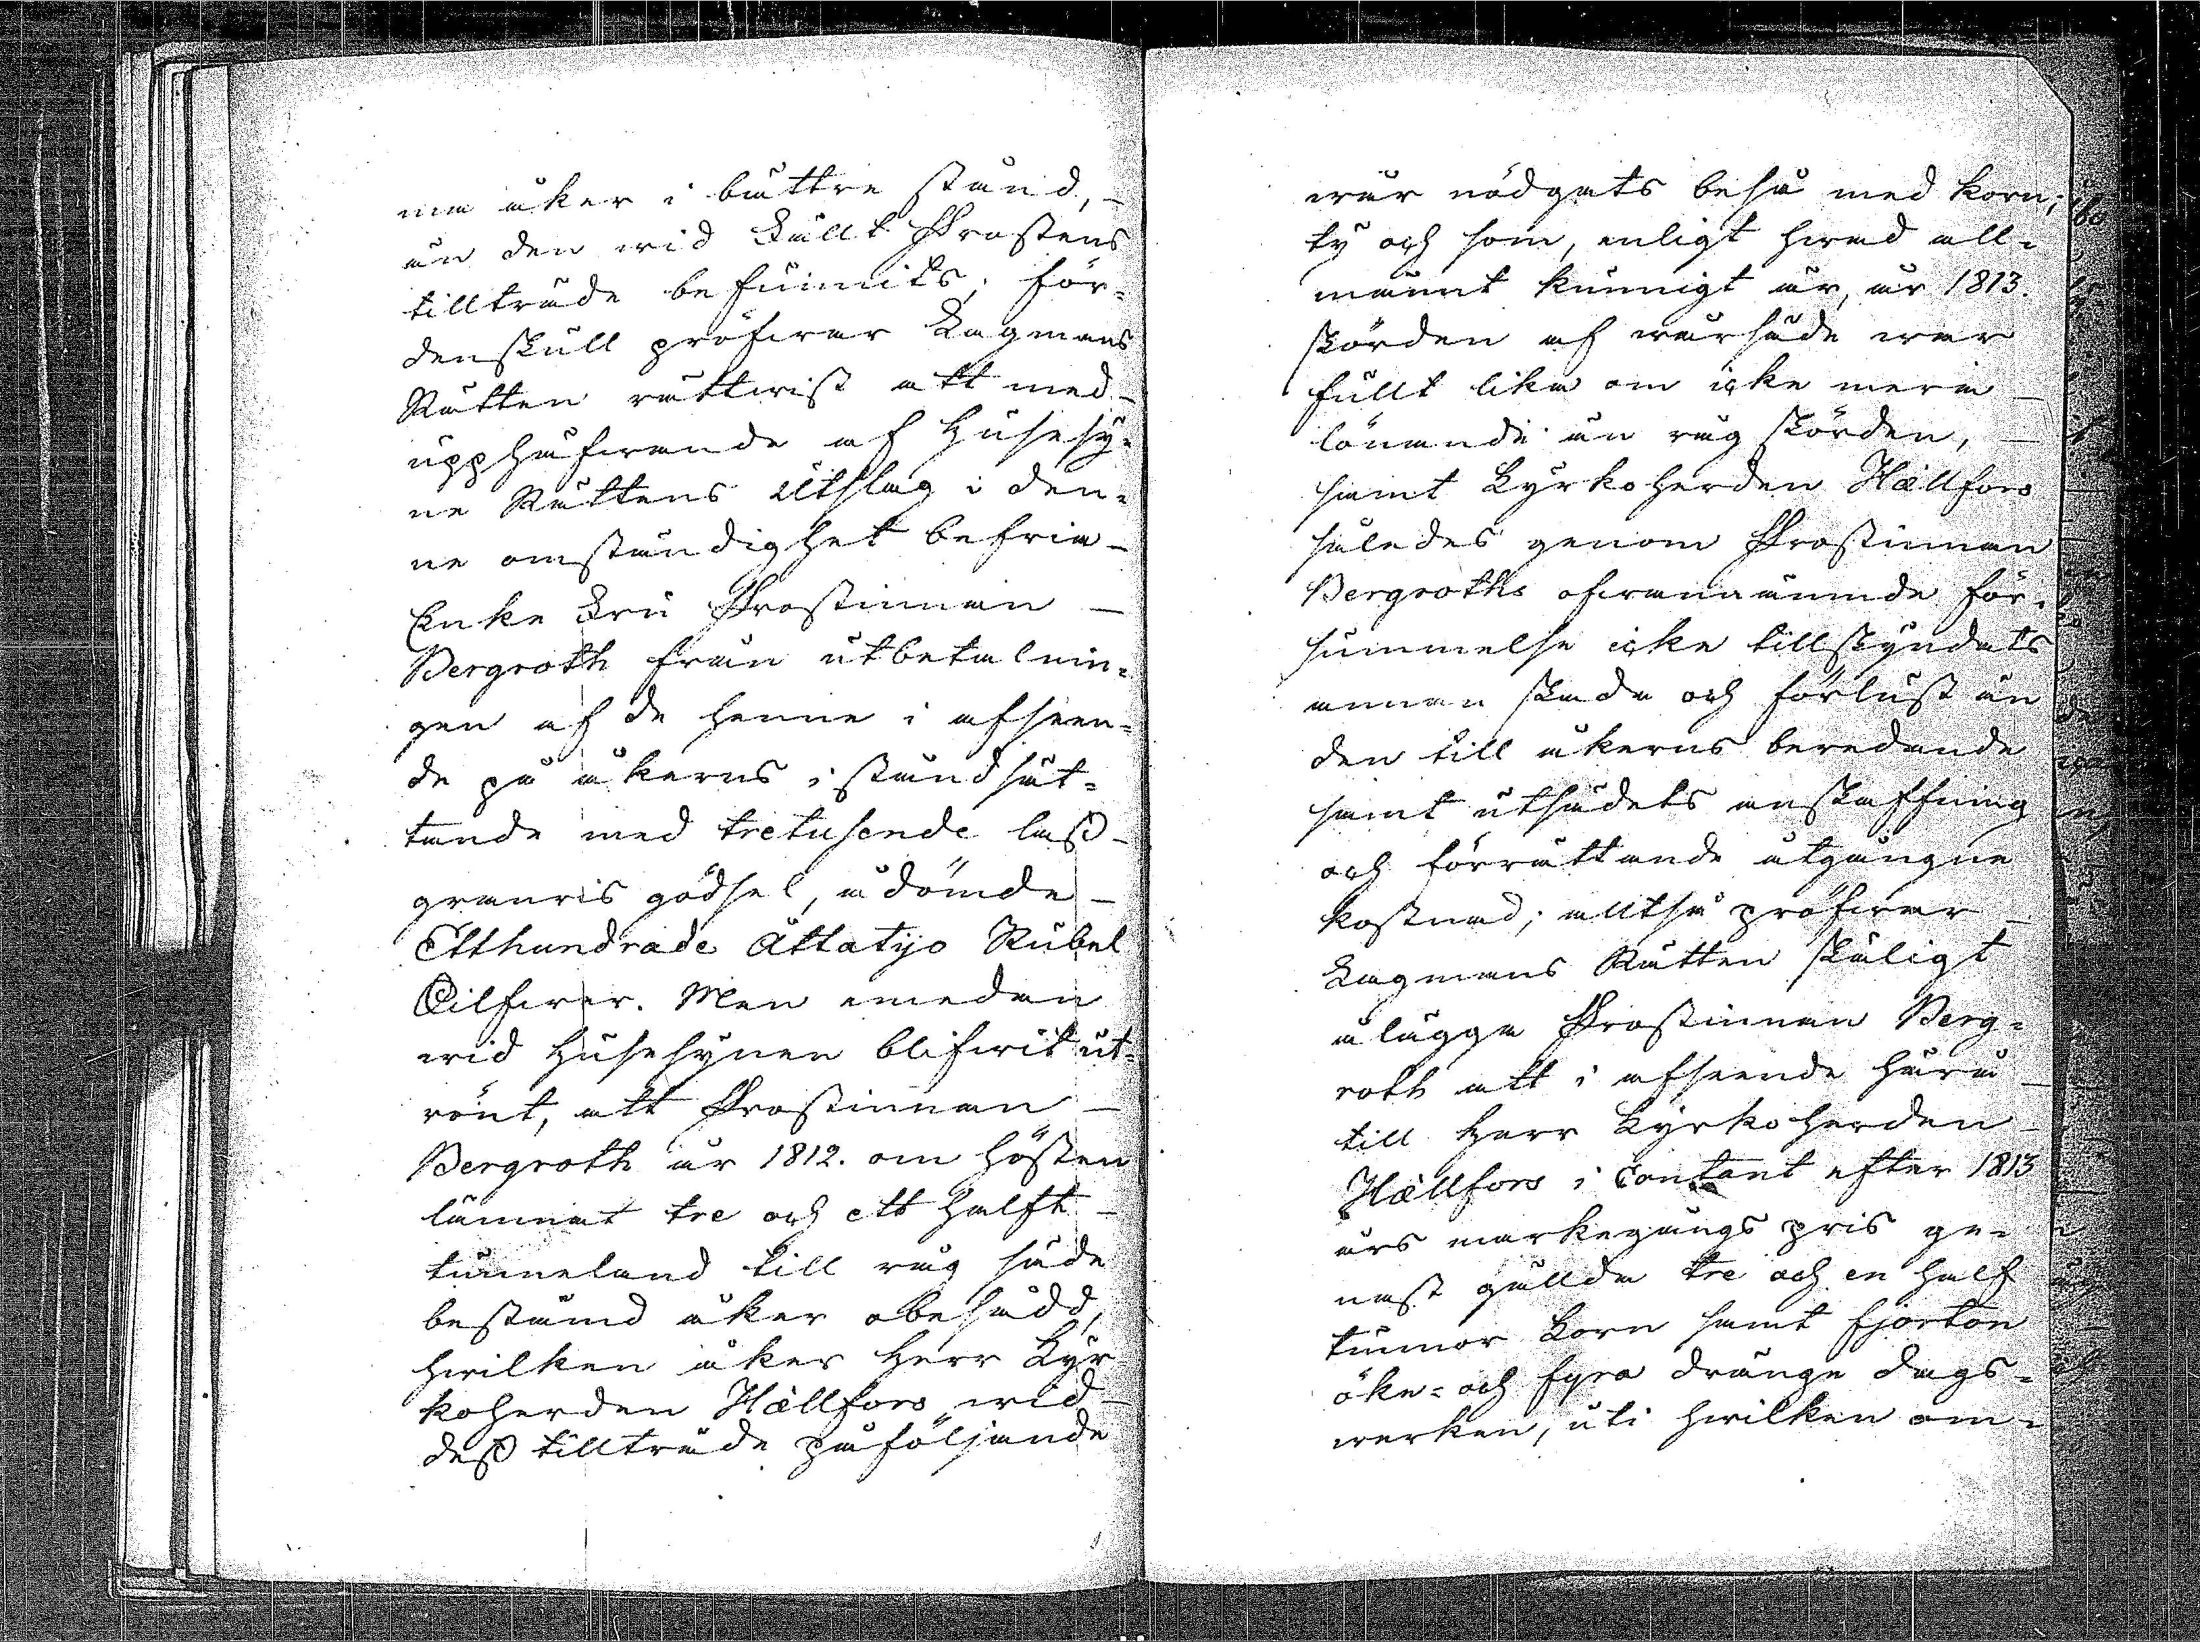 ma åker i bättre stånd,
än den wid Kallt Prostens
tillträde befunnits; för-
denskull pröfwar Lagmans
Rätten rättwist att med
upphäfwande af Husesy-
ne Rättens Utslag i den-
ne omständighet befria
Enke Fru Prostinnan
Bergroth från utbetalnin-
gen af de henne i afseen-
de på åkerns iståndsät-
tande med tretusende lass
granris gödsel, ådömde
Etthundrade Åttatijo Rubel
Silfwer. Men emedan
wid Husesynen blifwit ut-
rönt, att Prostinnan
Bergroth år 1812. om hösten
lämnat tre och ett halft
tunneland till råg säde
bestämd åker obesådd,
hwilken åker Herr Kyr-
koherden Hællfors wid
dess tillträde påföljande
wår nödgats beså med Korn;
ty och som, enligt hwad all-
männt kunnigt är, år 1813.
skörden af wårsäde war
fullt lika om icke mera
lönande än råg skörden,
samt Kyrkoherden Hællfors
således genom Prostinnan
Bergroths ofwannämnde för-
summelse icke tillskyndats
annan skada och förlust än
den till åkerns beredande
samt utsädets anskaffning
och förrättande utgångne
kostnad; alltså pröfwar
Lagmans Rätten skäligt
ålägga Prostinnan Berg-
roth att i afseende härå
till Herr Kyrkoherden
Hællfors i Contant efter 1813
års markegångs pris ge-
nast gällda tre och en half
tunnor Korn samt fjorton
öke- och fyra dränge dags-
werken, uti hwilken om-